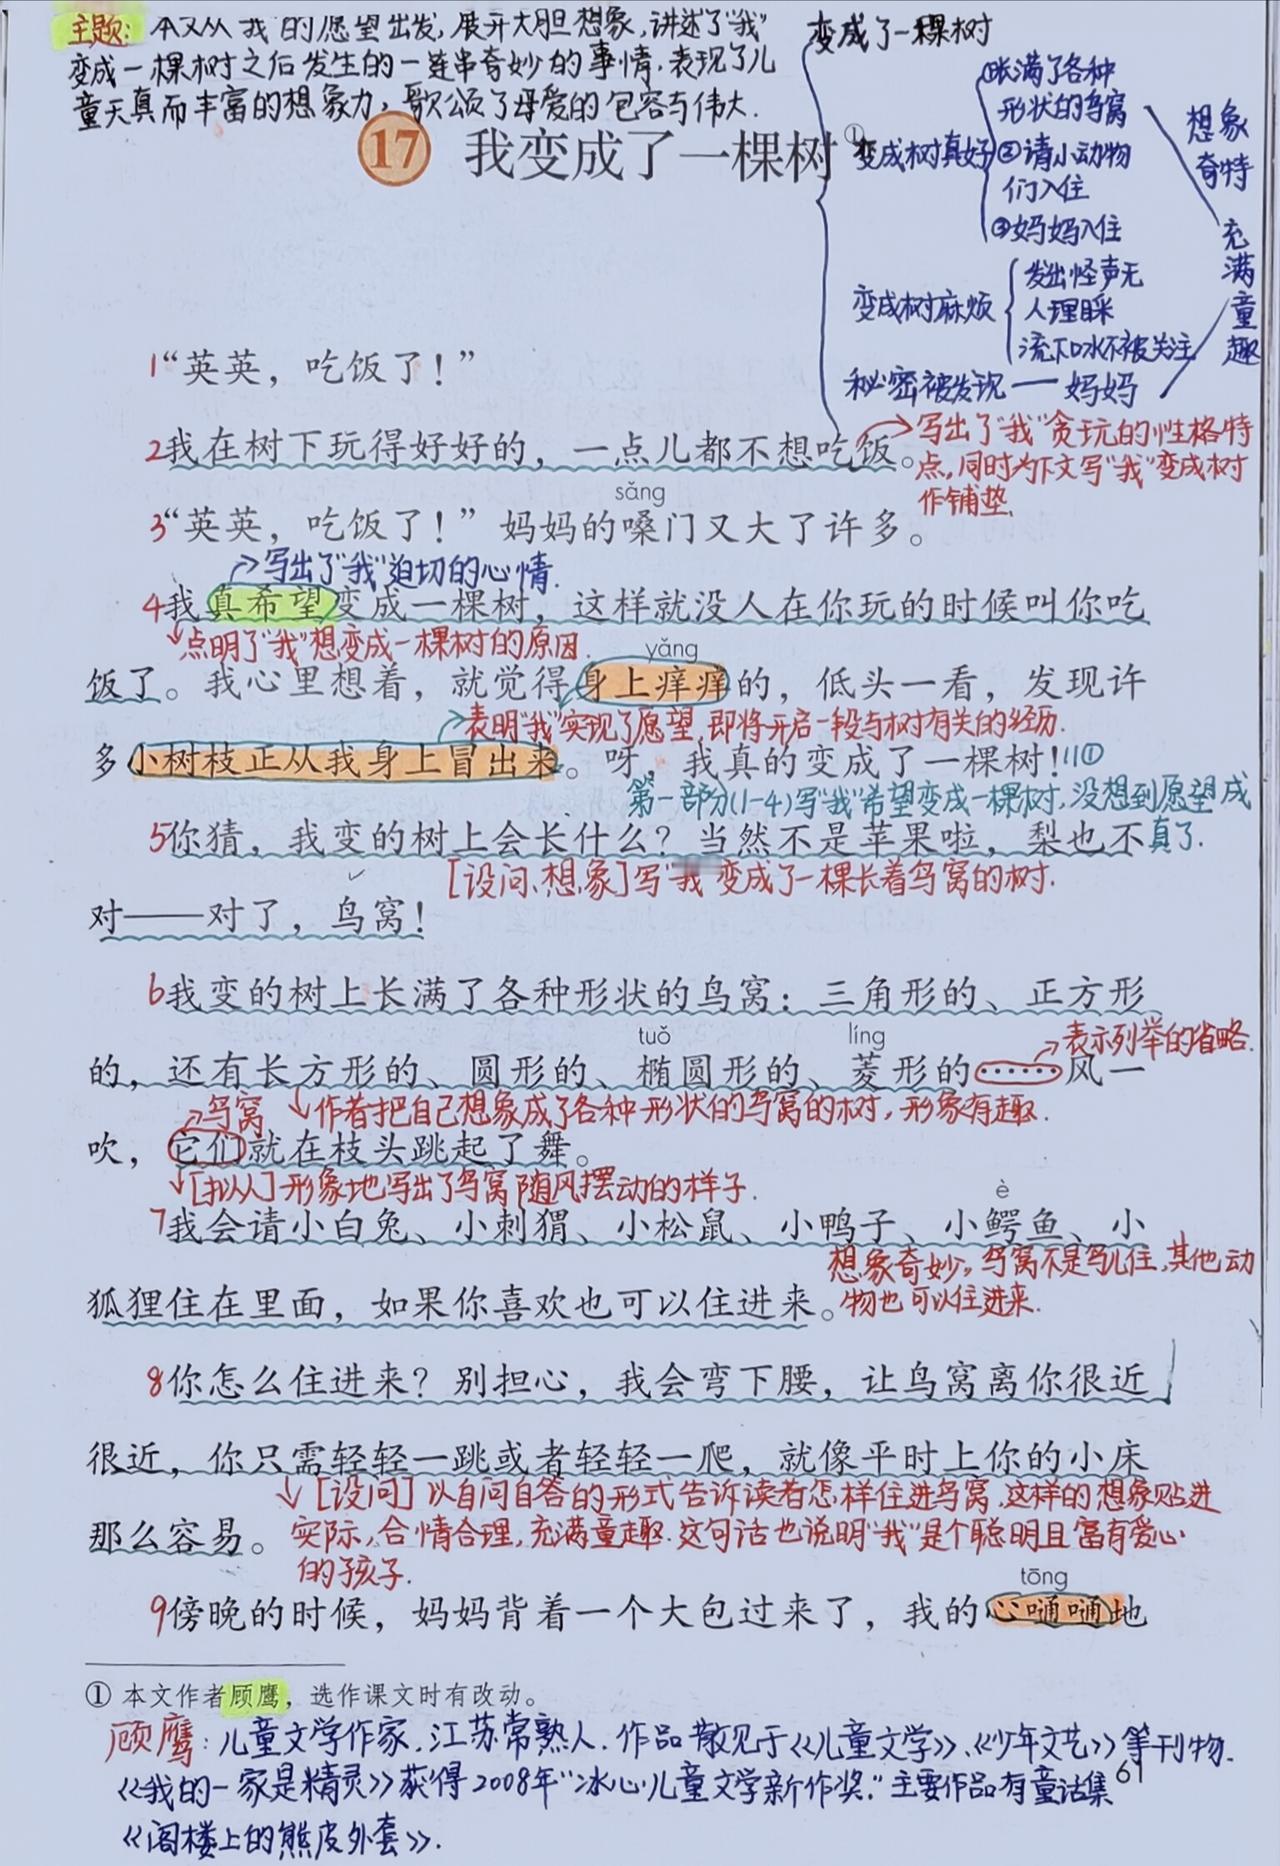 主题：本文从"我"的愿望出发，展开大胆想象，讲述了"我"
变成一棵树之后发生的一连串奇妙的事情.表现了儿
童天真而丰富的想象力，歌颂了母爱的包容与伟大.
17 我变成了一棵树①
变成了一棵树
变成树真好
①长满了各种
形状的鸟窝
②请小动物
们入住
③妈妈入住
变成树麻烦
发出怪声无
人理睬
流下口水不被关注
秘密被发现——妈妈
想象
奇特
充
满
童
趣
1“英英，吃饭了！”
2我在树下玩得好好的，一点儿都不想吃饭。
写出了"我"贪玩的性格特
点，同时为下文写"我"变成树
作铺垫.
sǎng
3“英英，吃饭了！”妈妈的嗓门又大了许多。
写出了"我"迫切的心情.
4我真希望变成一棵树，这样就没人在你玩的时候叫你吃
点明了"我"想变成一棵树的原因.
yǎng
饭了。我心里想着，就觉得身上痒痒的，低头一看，发现许
表明"我"实现了愿望，即将开启一段与树有关的经历.
多小树枝正从我身上冒出来。呀，我真的变成了一棵树！||①
第一部分(1-4)写"我"希望变成一棵树，没想到愿望成
真了.
5你猜，我变的树上会长什么？当然不是苹果啦，梨也不
[设问、想象]写"我"变成了一棵长着鸟窝的树.
对——对了，鸟窝！
6我变的树上长满了各种形状的鸟窝：三角形的、正方形
tuǒ líng
表示列举的省略.
的，还有长方形的、圆形的、椭圆形的、菱形的……风一
鸟窝
作者把自己想象成了各种形状的鸟窝的树，形象有趣.
吹，它们就在枝头跳起了舞。
[拟人]形象地写出了鸟窝随风摆动的样子.
è
7我会请小白兔、小刺猬、小松鼠、小鸭子、小鳄鱼、小
想象奇妙，鸟窝不是鸟儿住，其他动
物也可以住进来.
狐狸住在里面，如果你喜欢也可以住进来。
8你怎么住进来？别担心，我会弯下腰，让鸟窝离你很近
很近，你只需轻轻一跳或者轻轻一爬，就像平时上你的小床
[设问]以自问自答的形式告诉读者怎样住进鸟窝，这样的想象贴进
那么容易。
实际，合情合理，充满童趣.这句话也说明"我"是个聪明且富有爱心
的孩子.
tōng
9傍晚的时候，妈妈背着一个大包过来了，我的心嗵嗵地
① 本文作者顾鹰，选作课文时有改动。
顾鹰：儿童文学作家.江苏常熟人.作品散见于《儿童文学》、《少年文艺》等刊物.
《我的一家是精灵》获得2008年"冰心儿童文学新作奖."主要作品有童话集
61
《阁楼上的熊皮外套》.